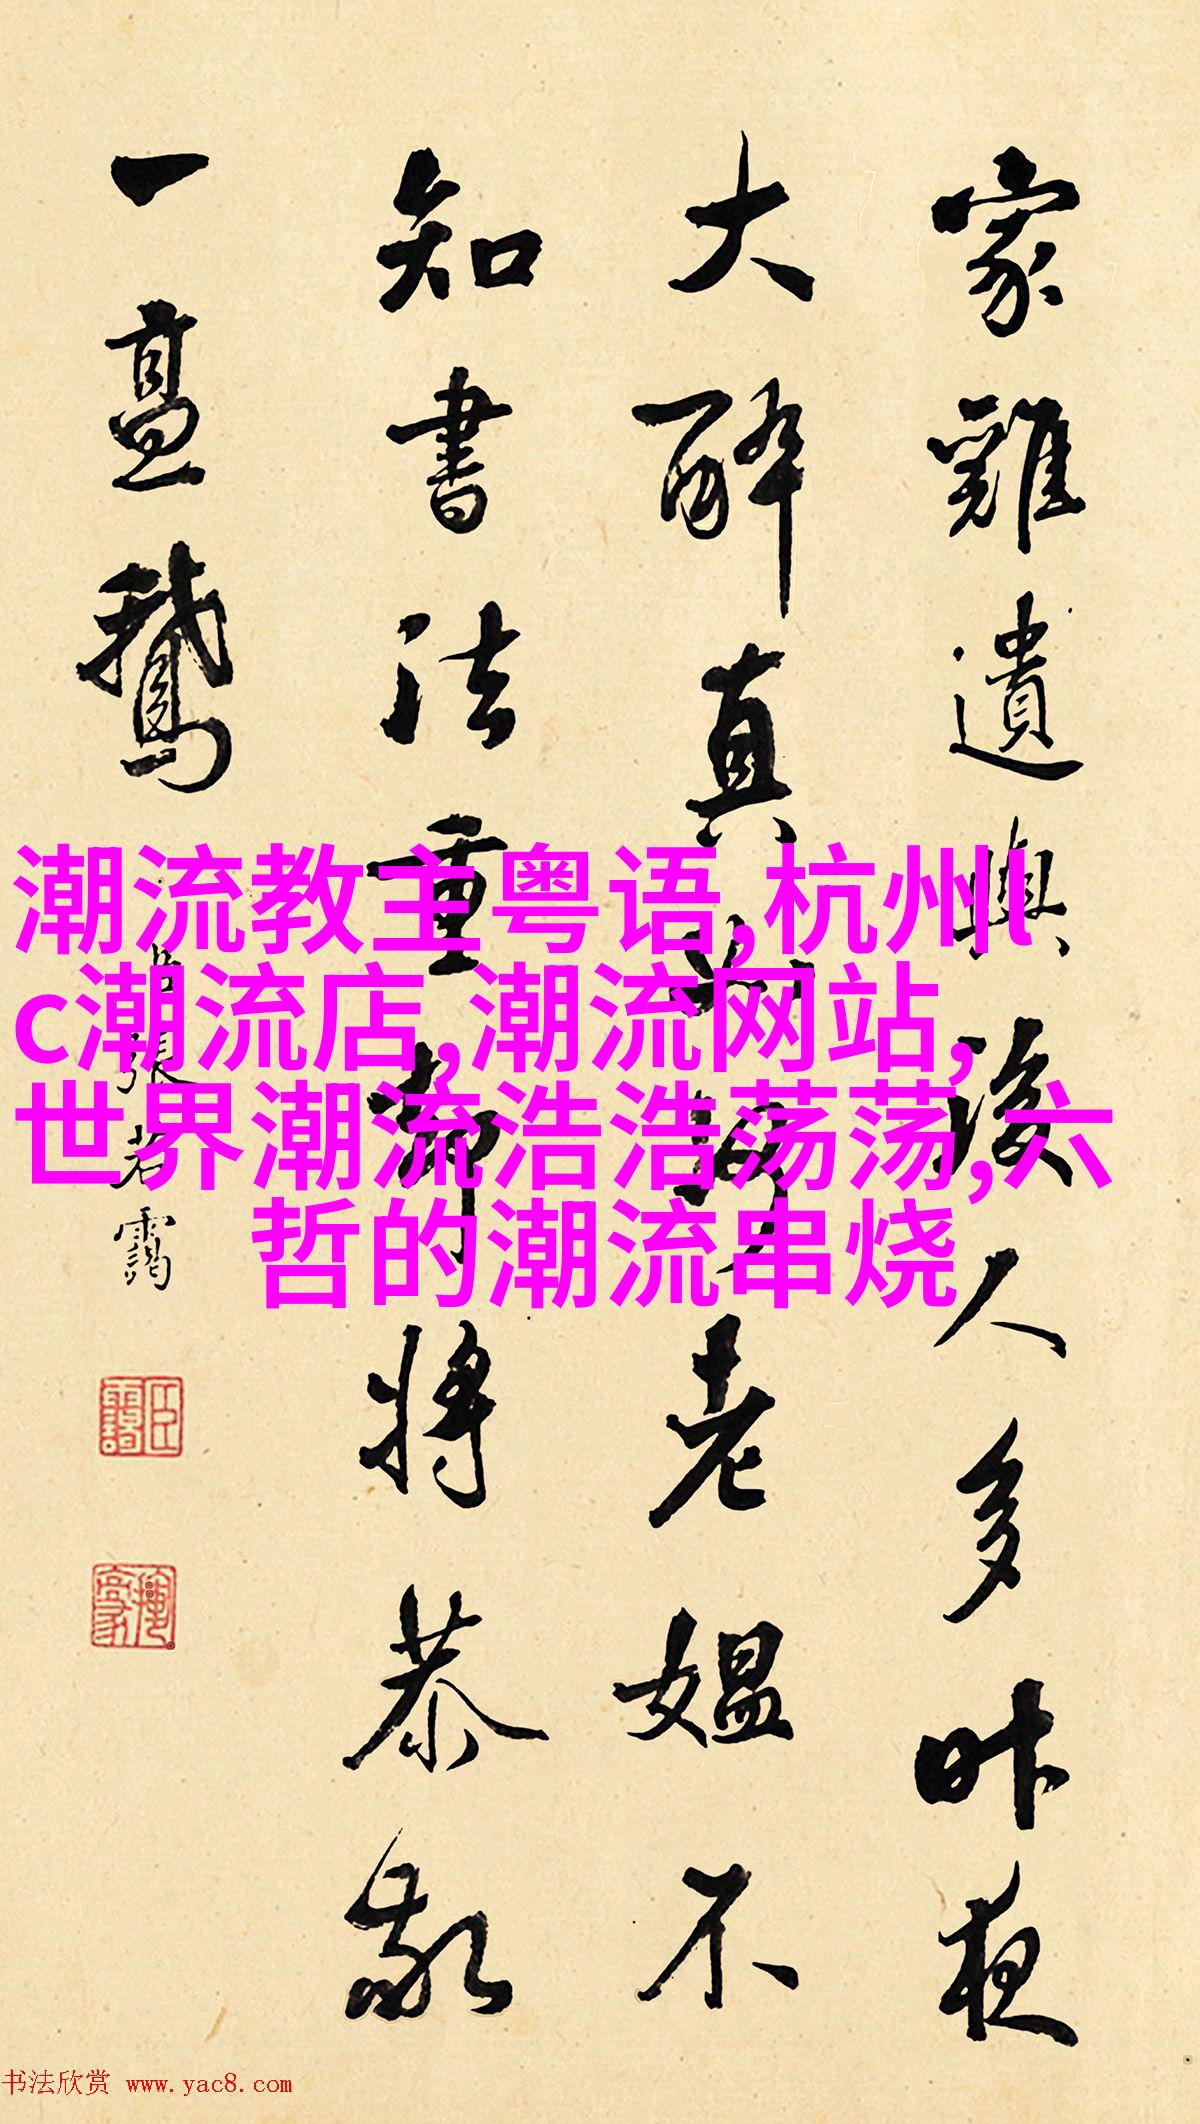 家雞遺與後人多昨夜
大醉真如老媼不
知書法重將恭敬
一鵝
臣張若靄
潮流教主粤语,杭州l
c潮流店,潮流网站,
世界潮流浩浩荡荡,六
哲的潮流串烧
书法欣赏 www.yac8.com